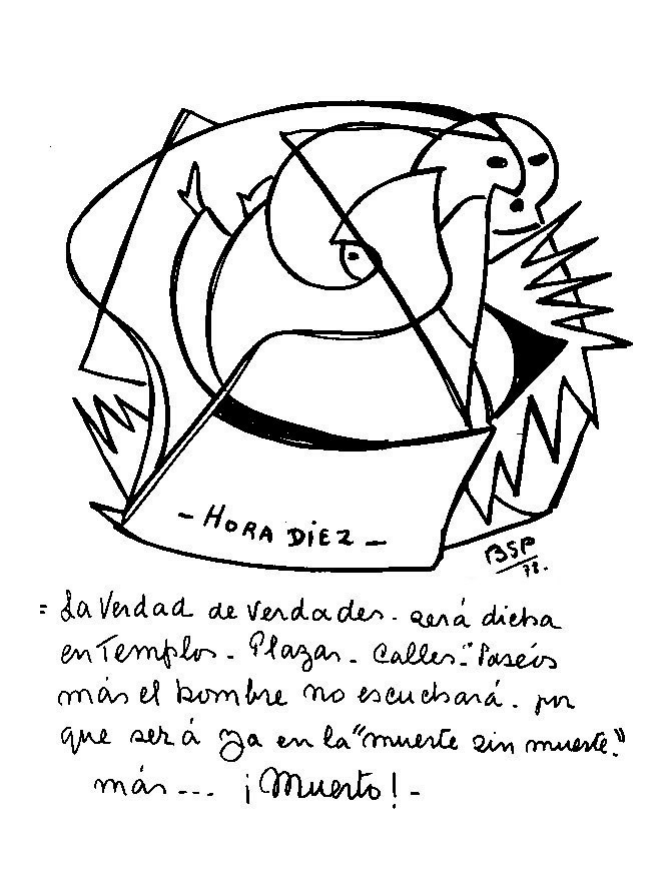 - HORA DIEZ -
BSP
78.
= La Verdad de verdades. será dicha
en Templos - Plazas - Calles - Paseos
más el hombre no escuchará. por
que será ya en la "muerte sin muerte."
más... ¡Muerto! -